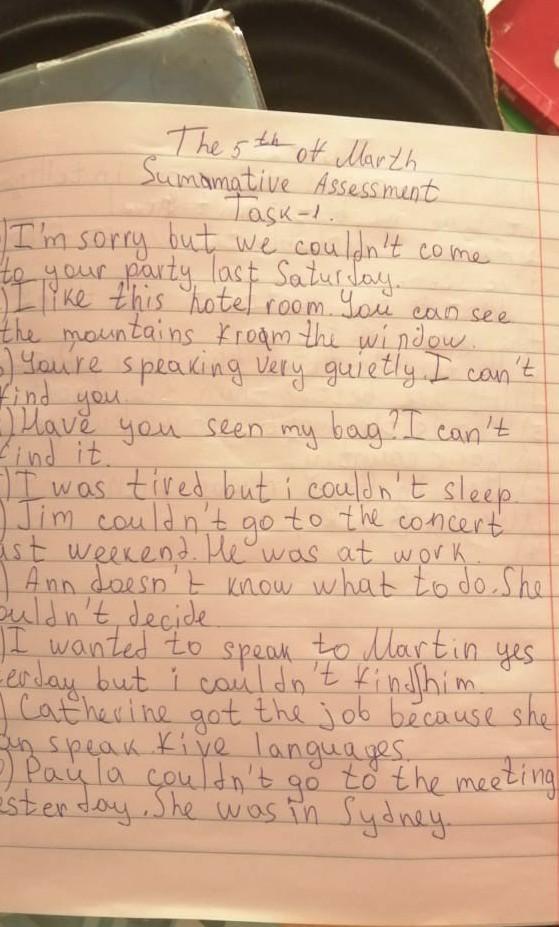 The 5th of Marth
Sumamative Assessment
Task-1.
)I'm sorry but we couldn't come
to your party last Saturday.
)I like this hotel room. You can see
the mountains froqm the window.
)You're speaking very quietly. I can't
find you.
)Have you seen my bag? I can't
find it.
)I was tired but i couldn't sleep.
) Jim couldn't go to the concert
ast weekend. He was at work.
) Ann doesn't know what to do. She
ouldn't decide
)I wanted to speak to Martin yes
erday but i couldn't find him.
) Catherine got the job because she
an speak five languages.
) Paula couldn't go to the meeting
ester day. She was in Sydney.